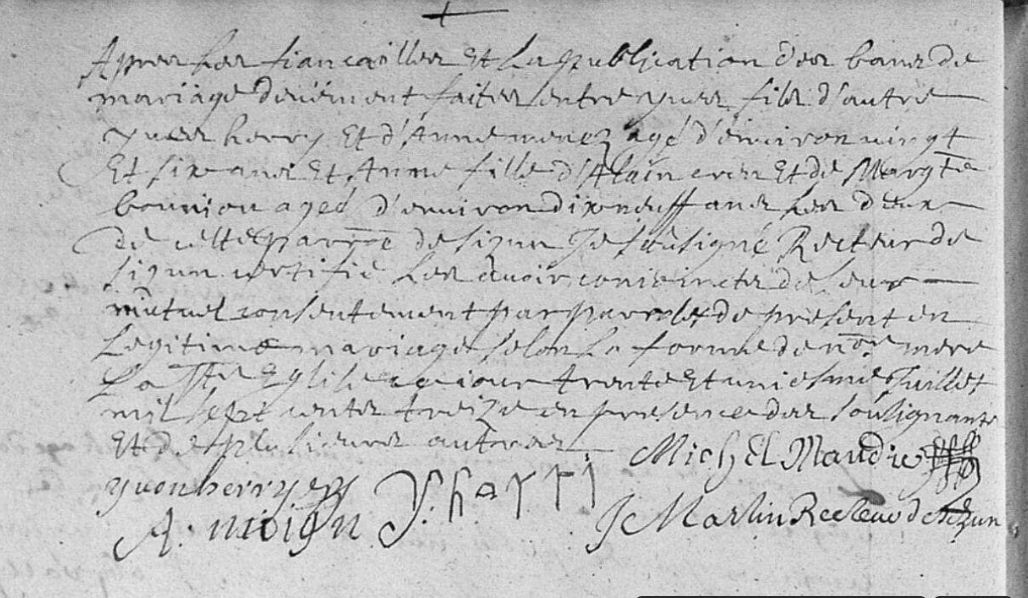 Apres les fiancailles et la publication des bans de
mariage deuëment faites entre yves fils d'autre
yves herry et d'Anne menez agé d'environ vingt
et six ans et Anne fille d'Alain et de Margte
agée d'environ dix neuff ans les deux
de cette parsse de sizun Je soúsigné Recteur de
sizun certifie les avoir conioincts de leur
mũtuel consentement par parroles de present en
Legitime mariage selon la forme de nore mere
La Ste Eglise ce jour trente et uniesme Juillet
mil sept cents treize en presence des soúsignants
et de plusieurs autres Michel
yvon herry
A: Y: harri J Martin Recteur de Sizun